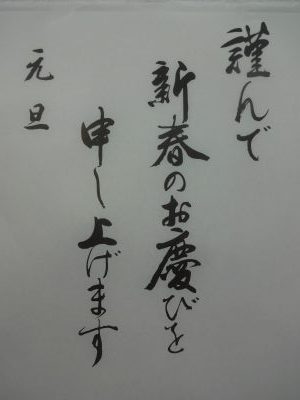 謹んで
新春のお慶びを
申し上げます
元旦